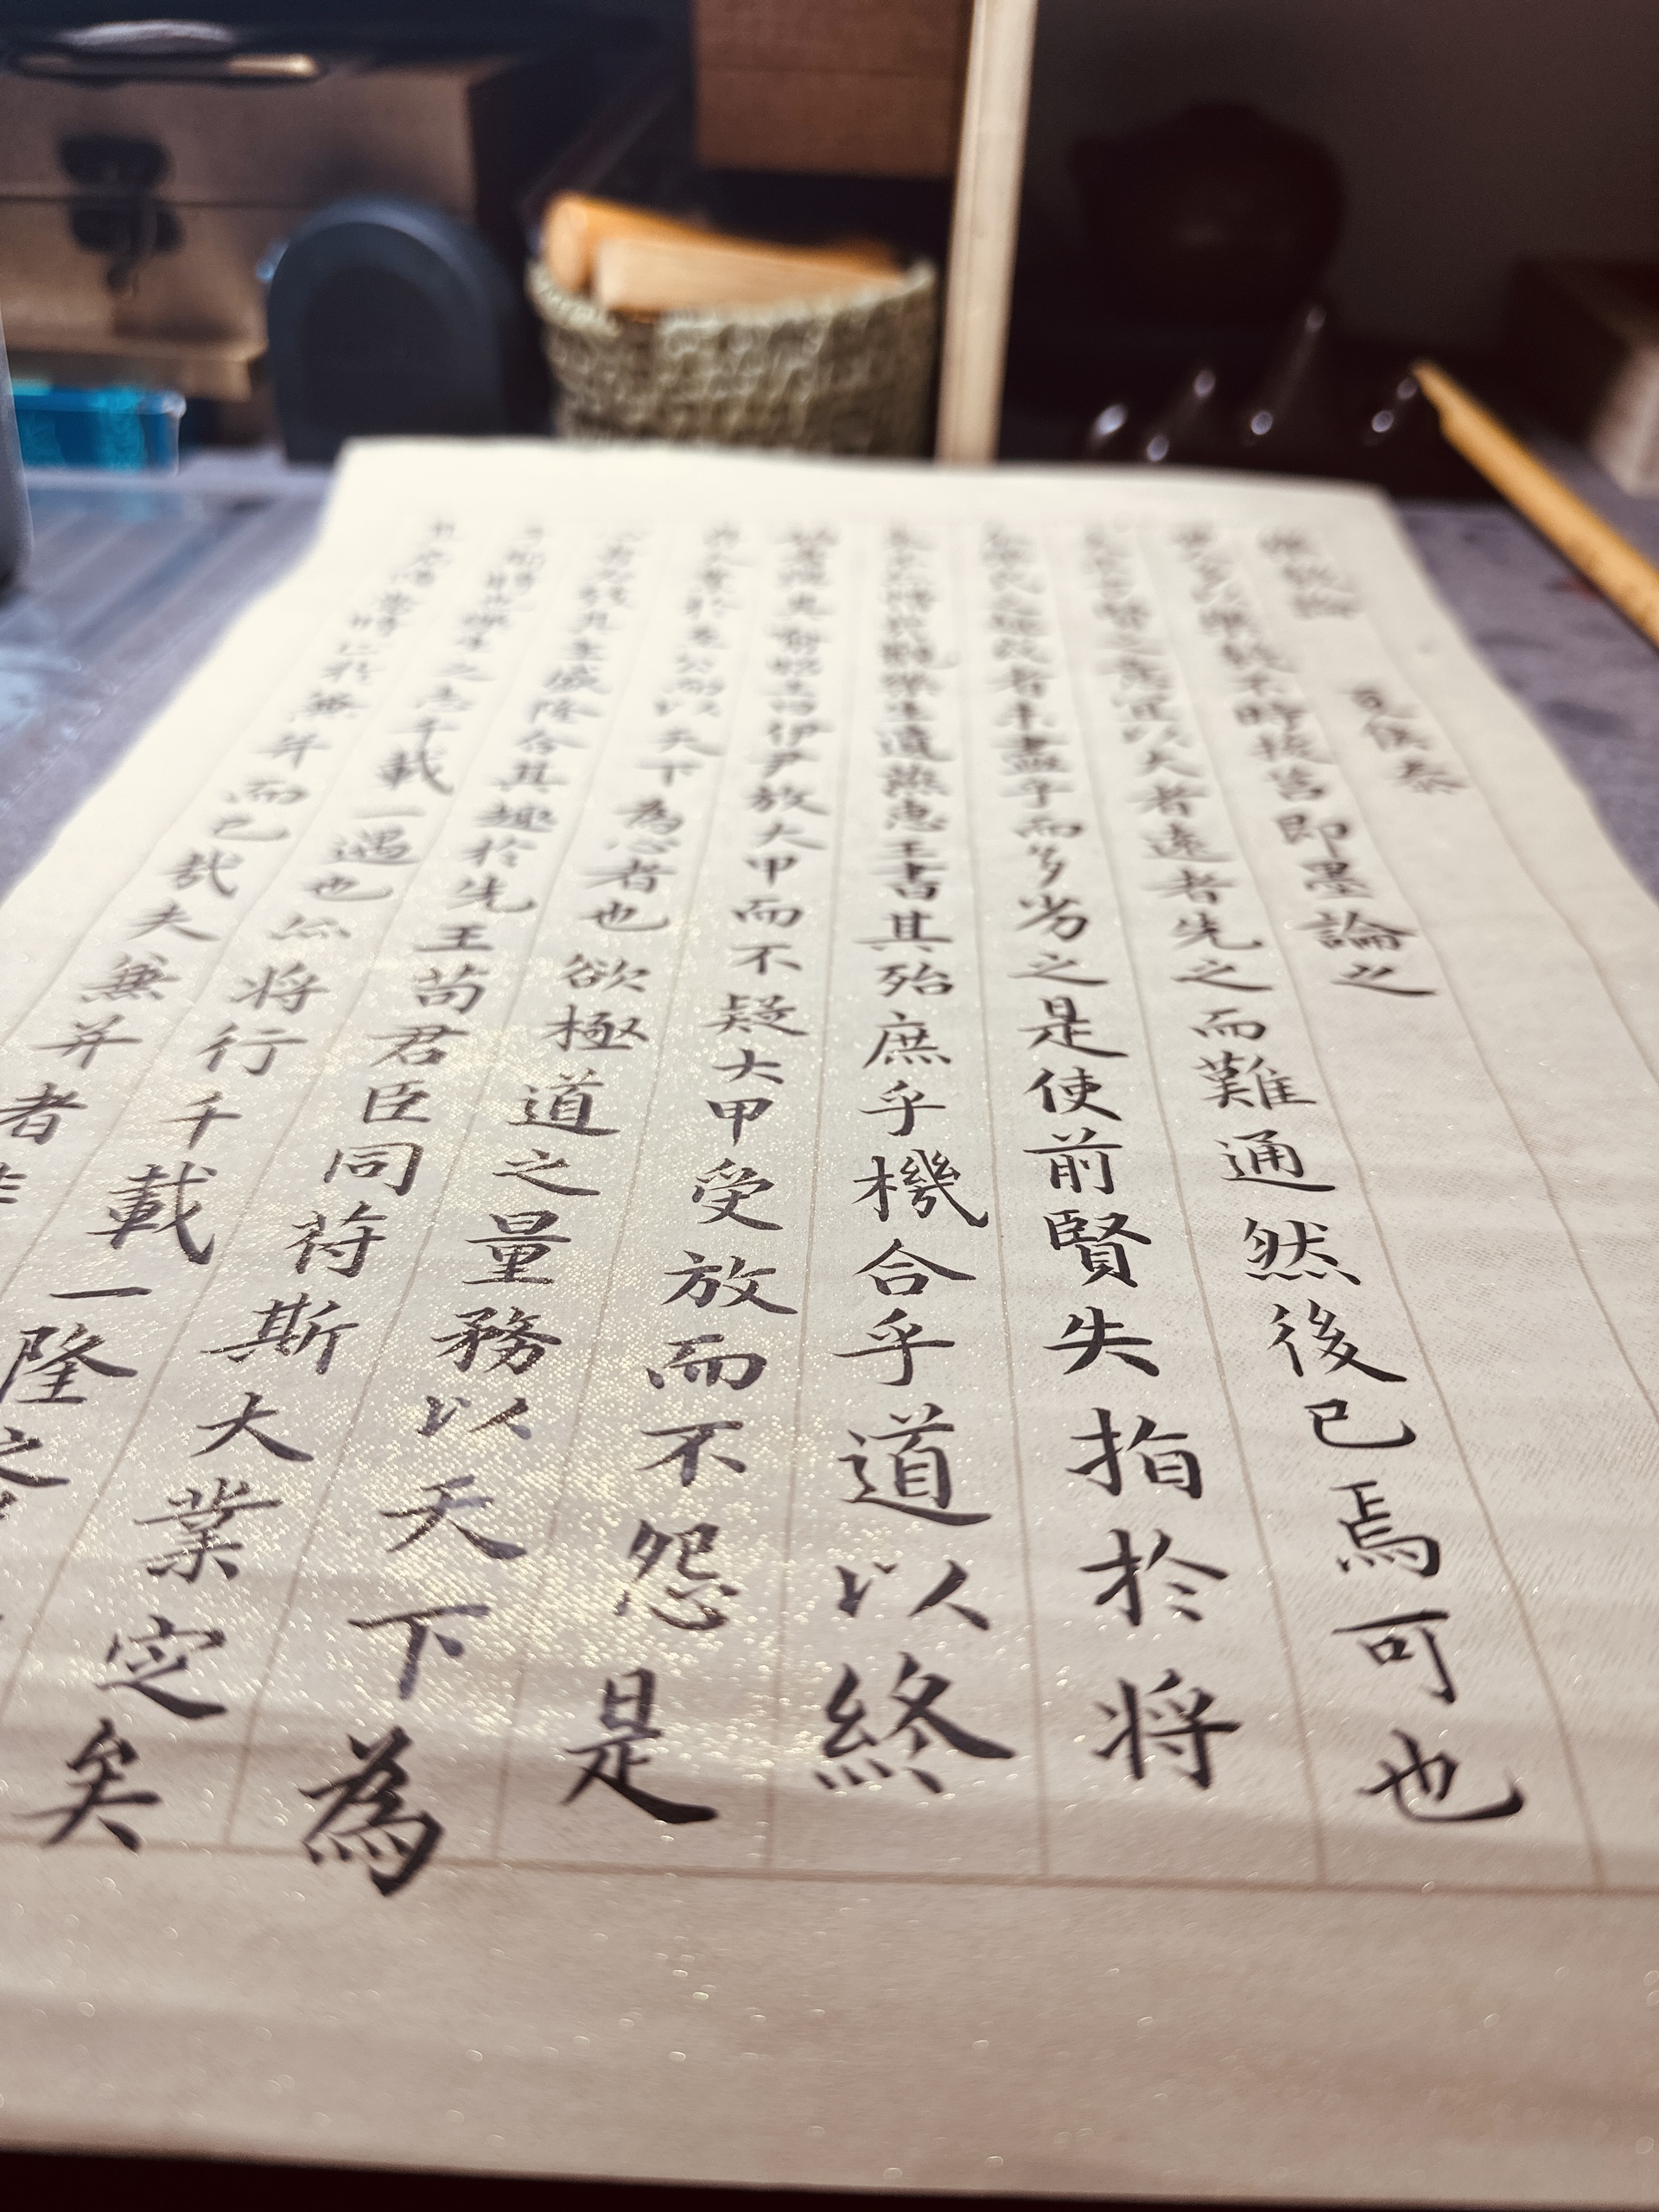 樂毅論 夏侯泰
世人多以樂毅不時拔莒即墨論之
古賢之意宜以大者遠者先之而難通然後已焉可也
樂氏之趣或者未盡乎而多劣之是使前賢失指於将
觀樂生遺燕惠王書其殆庶乎機合乎道以終
喻昭王曰伊尹放大甲而不疑大甲受放而不怨是
大業於至公而以天下為心者也欲極道之量務以天下為
心者必致其主盛隆合其趣於先王苟君臣同苻斯大業定矣
斯時也樂生之志千載一遇也亦将行千載一隆之
當時止於無年而已哉夫無并者非